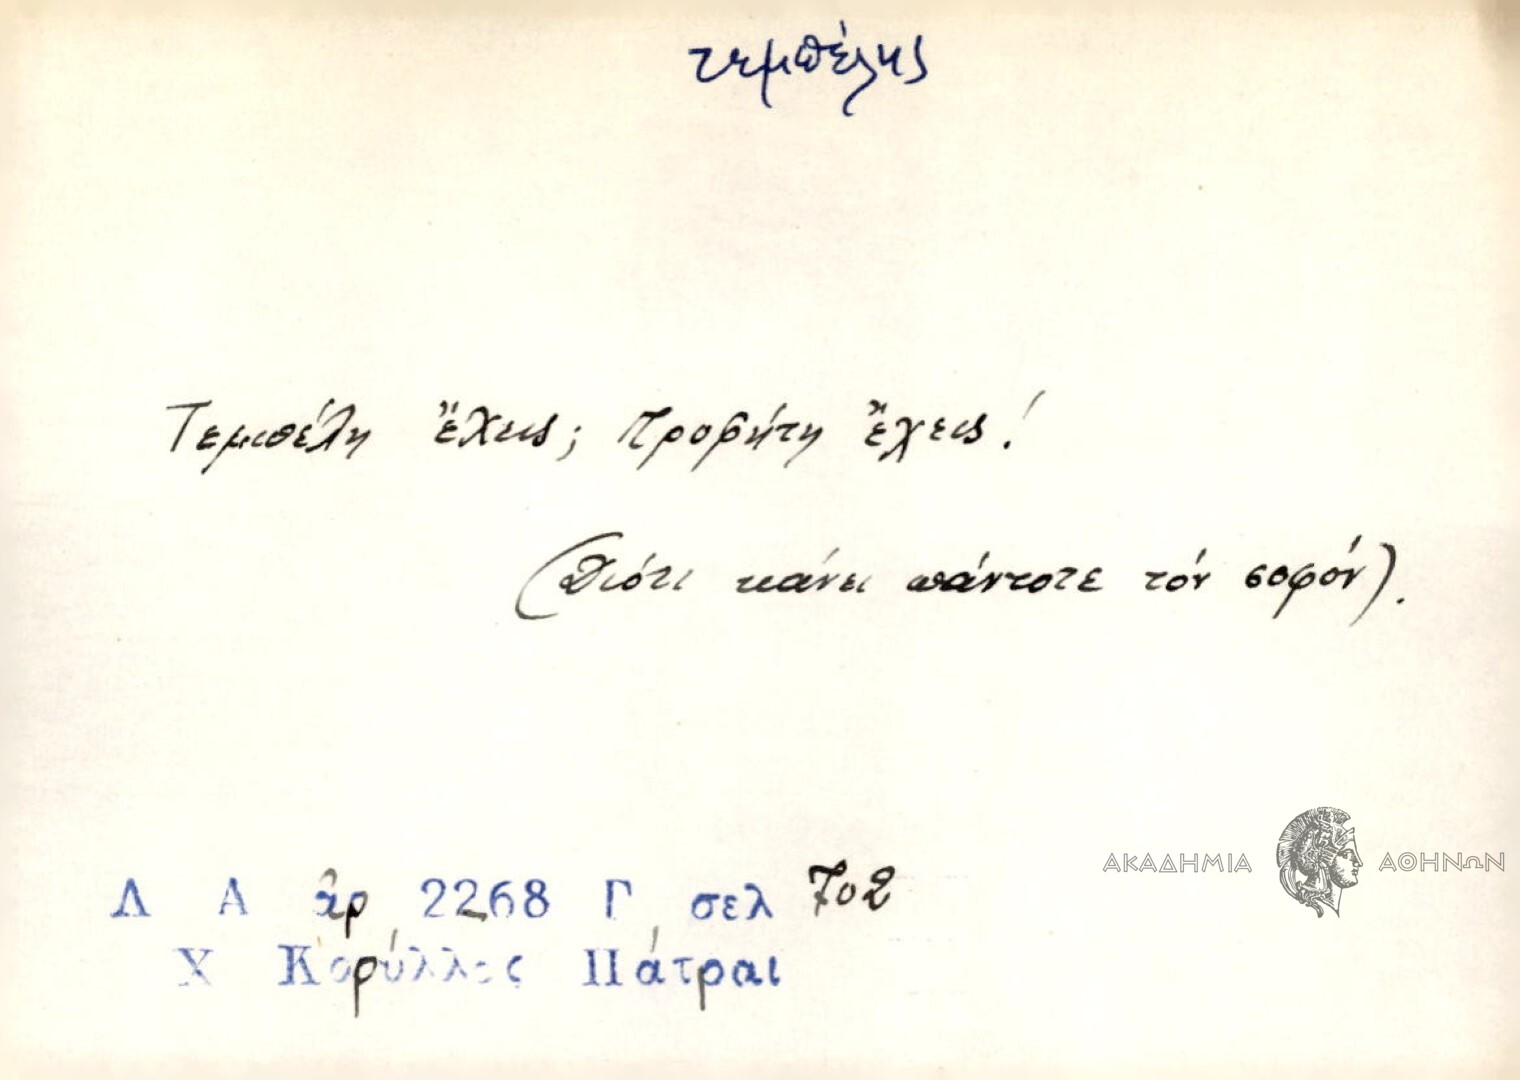 τεμπέλης
Τεμπέλη ἔχεις; Προφήτη ἔχεις!
(Διότι κάνει πάντοτε τόν σοφόν).
Λ Α ἀρ 2268 Γ σελ 702
Χ Κορύλλος Πάτραι
ΑΚΑΔΗΜΙΑ ΑΘΗΝΩΝ